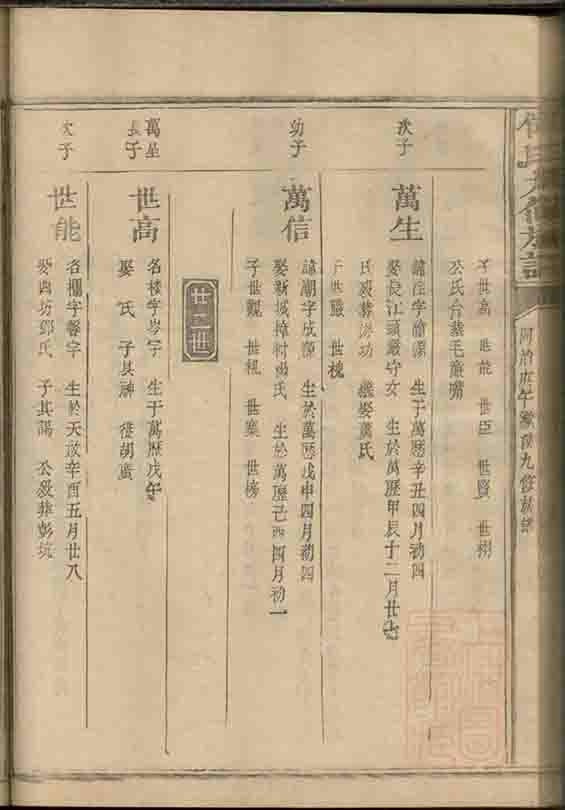 同治庚午
九修族譜
子世高 世能 世臣 世賢
公氏合葬毛蕭嘴
次子
萬生
諱注字 生于萬歷辛丑四月初四
娶長江頭嚴守女 生於萬歷甲辰十二月廿
氏毀葬 功 繼娶黃氏
子世 世槐
幼子
萬信
諱潮字成 生於萬歷戊申四月初四
娶新城樟村 氏 生於萬歷己酉四月初一
子世觀 世 世 世榜
廿二世
萬星
長子
世高
名樓字岑宇 生于萬歷戊午
娶 氏 子其 徙胡廣
次子
世能
名 字馨宇 生於天啟辛酉五月廿八
娶西坊鄧氏 子其陽 公毀葬彭坑